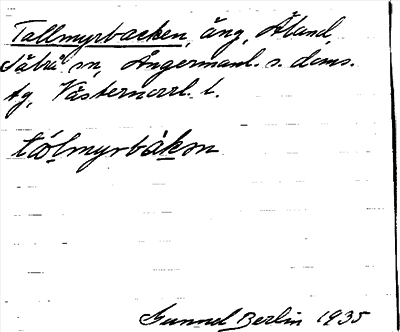 Tallmyrbacken, äng, Åland,
Säbrå sn, Ångermanl. s. doms.
tg, Västernorrl. l.
tålmyrbákɱ
Gunnel Berlin 1935